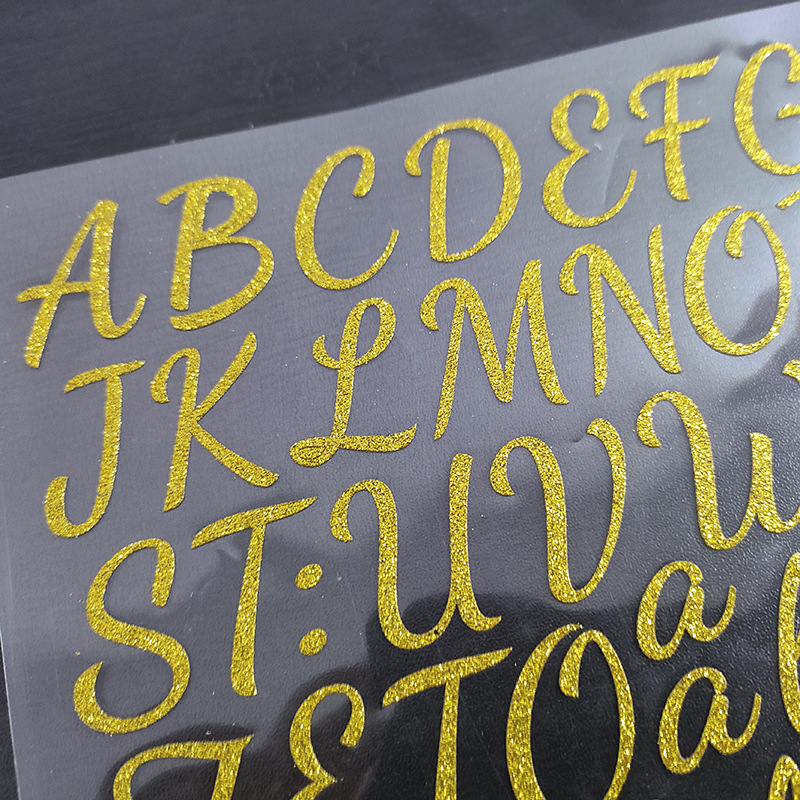 A B C D E F G
J K L M N O
S T : U V W a
J E T O a